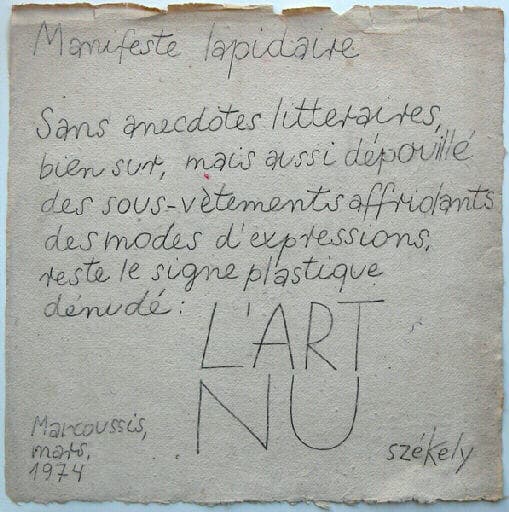 Manifeste lapidaire
Sans anecdotes litteraires,
bien sur, mais aussi dépouillé
des sous-vètements affriolants
des modes d'expressions,
reste le signe plastique
dénudé:
L'ART
NU
Marcoussis,
mars,
1974
székely